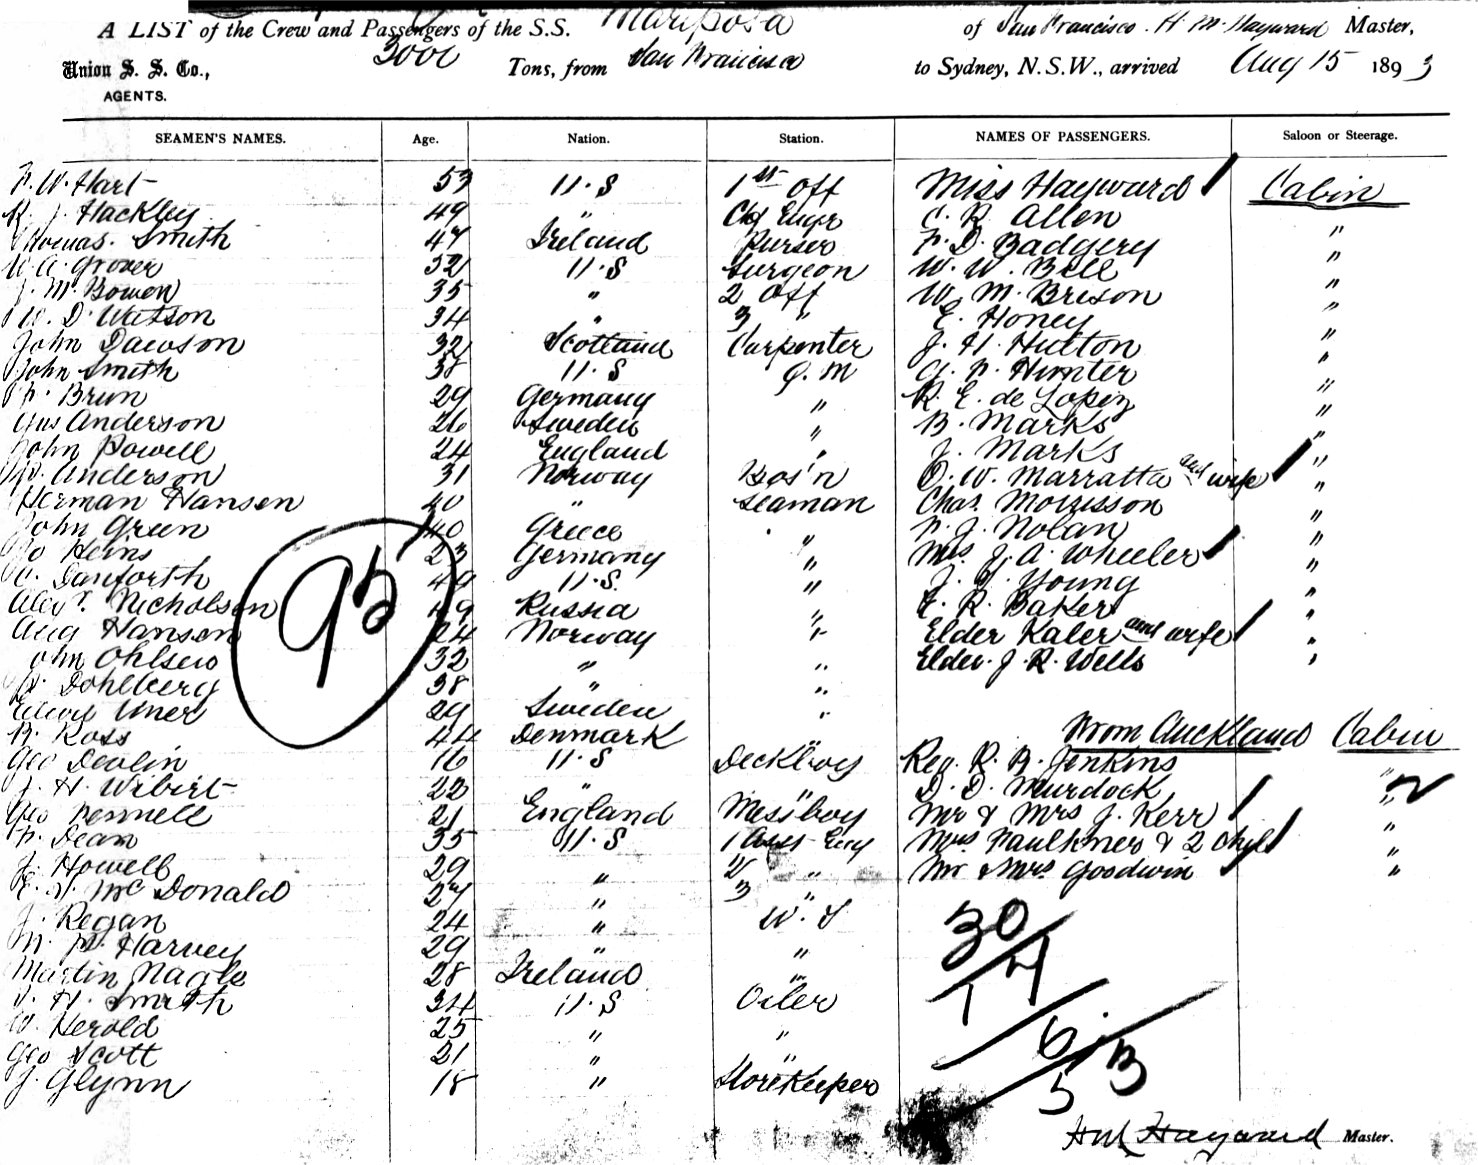 A LIST of the Crew and Passengers of the S.S. Mariposa of San Francisco. H. M. Hayward Master,
Union S. S. Co., 3000 Tons, from San Francisco to Sydney, N.S.W., arrived Aug 15 1893
AGENTS.
SEAMEN'S NAMES. Age. Nation. Station. NAMES OF PASSENGERS. Saloon or Steerage.
F. W. Hart 53 U.S 1st Off Miss Hayward Cabin
R. J. Hackley 49 " Chf Engr C. R. Allen "
Thomas. Smith 47 Ireland Purser F. D. Badgery "
Grover 52 U.S Surgeon W. W. Bell "
J. M. Bowen 35 " 2 Off W. M. Breson "
W. D. Watson 34 " 3 " E. Honey "
John Dawson 32 Scotland Carpenter J. H. Hutton "
John Smith 38 U.S Q. M G. F. Hunter "
F. Brun 29 Germany " R. E. de Lopez "
Gus Anderson 26 Sweden " B. Marks "
John Powell 24 England " J. Marks "
Anderson 31 Norway Bos'n O. W. Marratta and wife "
Herman Hansen 40 " Seaman Chas. Morrisson "
John Green 40 Greece " F. J. Nolan "
Heins 23 Germany " Mrs. J. A. Wheeler "
C. Danforth 49 U.S. " J. Young "
Alexr. Nicholson 49 Russia " E. R. Baker "
Aug Hansen 24 Norway " Elder Kaler and wife "
John Ohlsen 32 " " Elder. J. R. Wells "
Dohlberg 38 " "
Uner 29 Sweden "
Ross 44 Denmark " From Auckland Cabin
Geo Devlin 16 U.S Deckboy Rev. R. B. Jenkins "
J. H. Wibirt 22 " " D. D. Murdock "
Geo Pennell 21 England Messboy Mr & Mrs J. Kerr "
F. Dean 35 U.S 1 Asst Eng Mrs Faulkner & 2 Chyld "
J. Howell 29 " 2 " Mr & Mrs Goodwin "
E. V. McDonald 27 " 3 "
J. Regan 24 " W. T
M. P. Harvey 29 " "
Martin Nagle 28 Ireland "
J. H. Smith 34 U.S Oiler
W. Herold 25 " "
Geo Scott 21 " "
J. Glynn 18 " Storekeeper
95
30
4
1
6
3
5
H M Hayward Master.